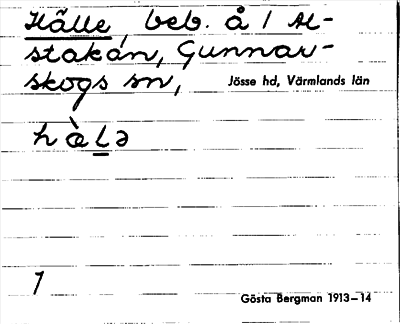 Hälle, beb. å 1 Al-
stakan, Gunnar-
skogs sn,
Jösse hd, Värmlands län
hὰLə
1
Gösta Bergman 1913–14